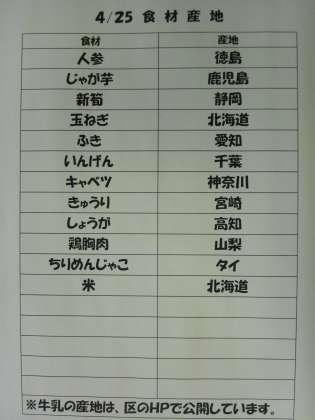 4/25 食材産地
食材 産地
人参 徳島
じゃが芋 鹿児島
新筍 静岡
玉ねぎ 北海道
ふき 愛知
いんげん 千葉
キャベツ 神奈川
きゅうり 宮崎
しょうが 高知
鶏胸肉 山梨
ちりめんじゃこ タイ
米 北海道
※牛乳の産地は、区のHPで公開しています。